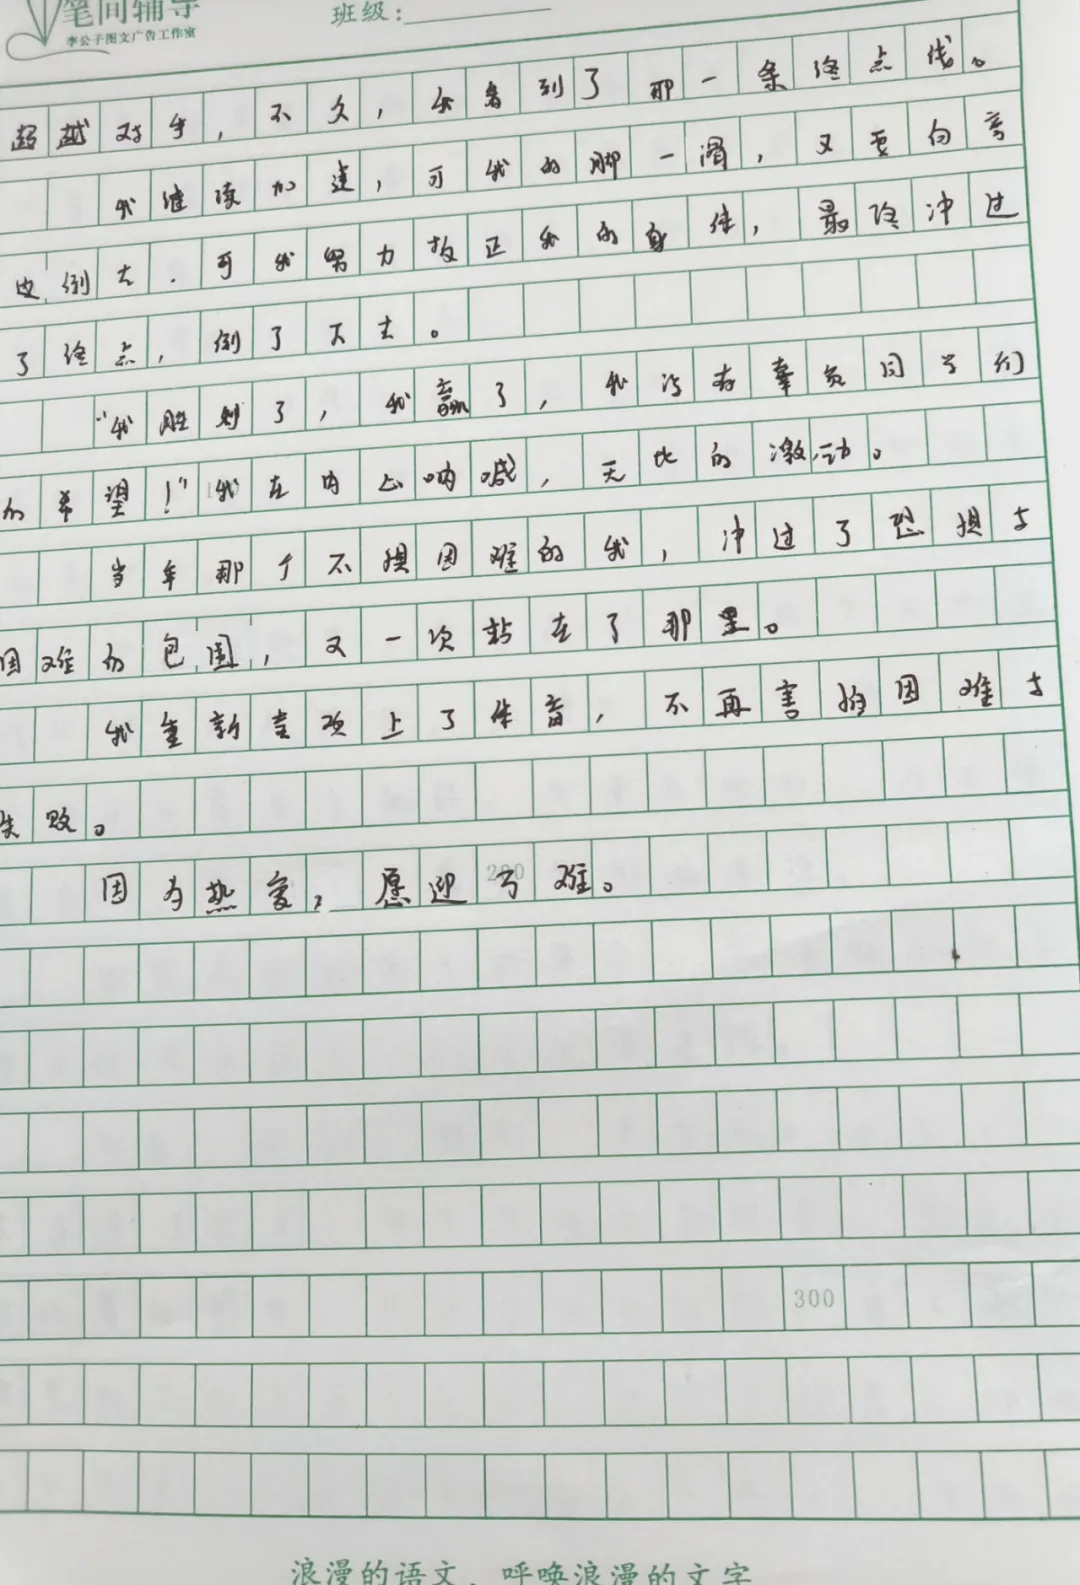 笔间辅导
李公子图文广告工作室
班级：
超越对手，不久，我看到了那一条终点线。
我继续加速，可我的脚一滑，又要向旁
边倒去.可我努力扳正我的身体，最终冲过
了终点，倒了下去。
“我胜利了，我赢了，我没有辜负同学们
的希望！”我在内心呐喊，无比的激动。
当年那个不惧困难的我，冲过了恐惧与
困难的包围，又一次站在了那里。
我重新喜欢上了体育，不再害怕困难与
失败。
因为热爱，愿迎万难。
200
300
浪漫的语文，呼唤浪漫的文字